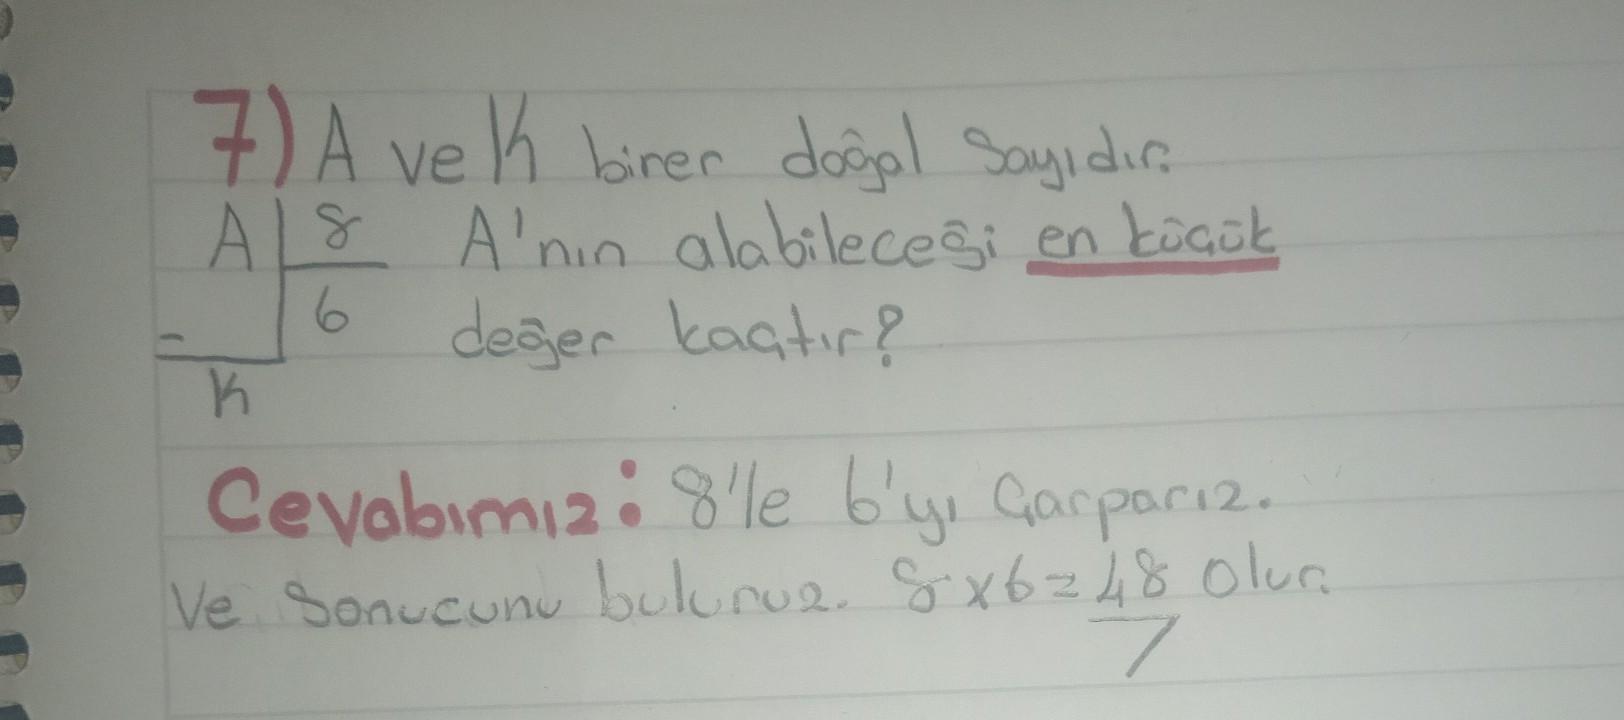 7) A ve K birer doğal Sayıdır.
A 8 A'nın alabileceği en küçük
- 6 değer kaçtır?
K
Cevabımız: 8'le 6'yı Çarparız.
Ve Sonucunu buluruz. 8x6=48 olur.
7